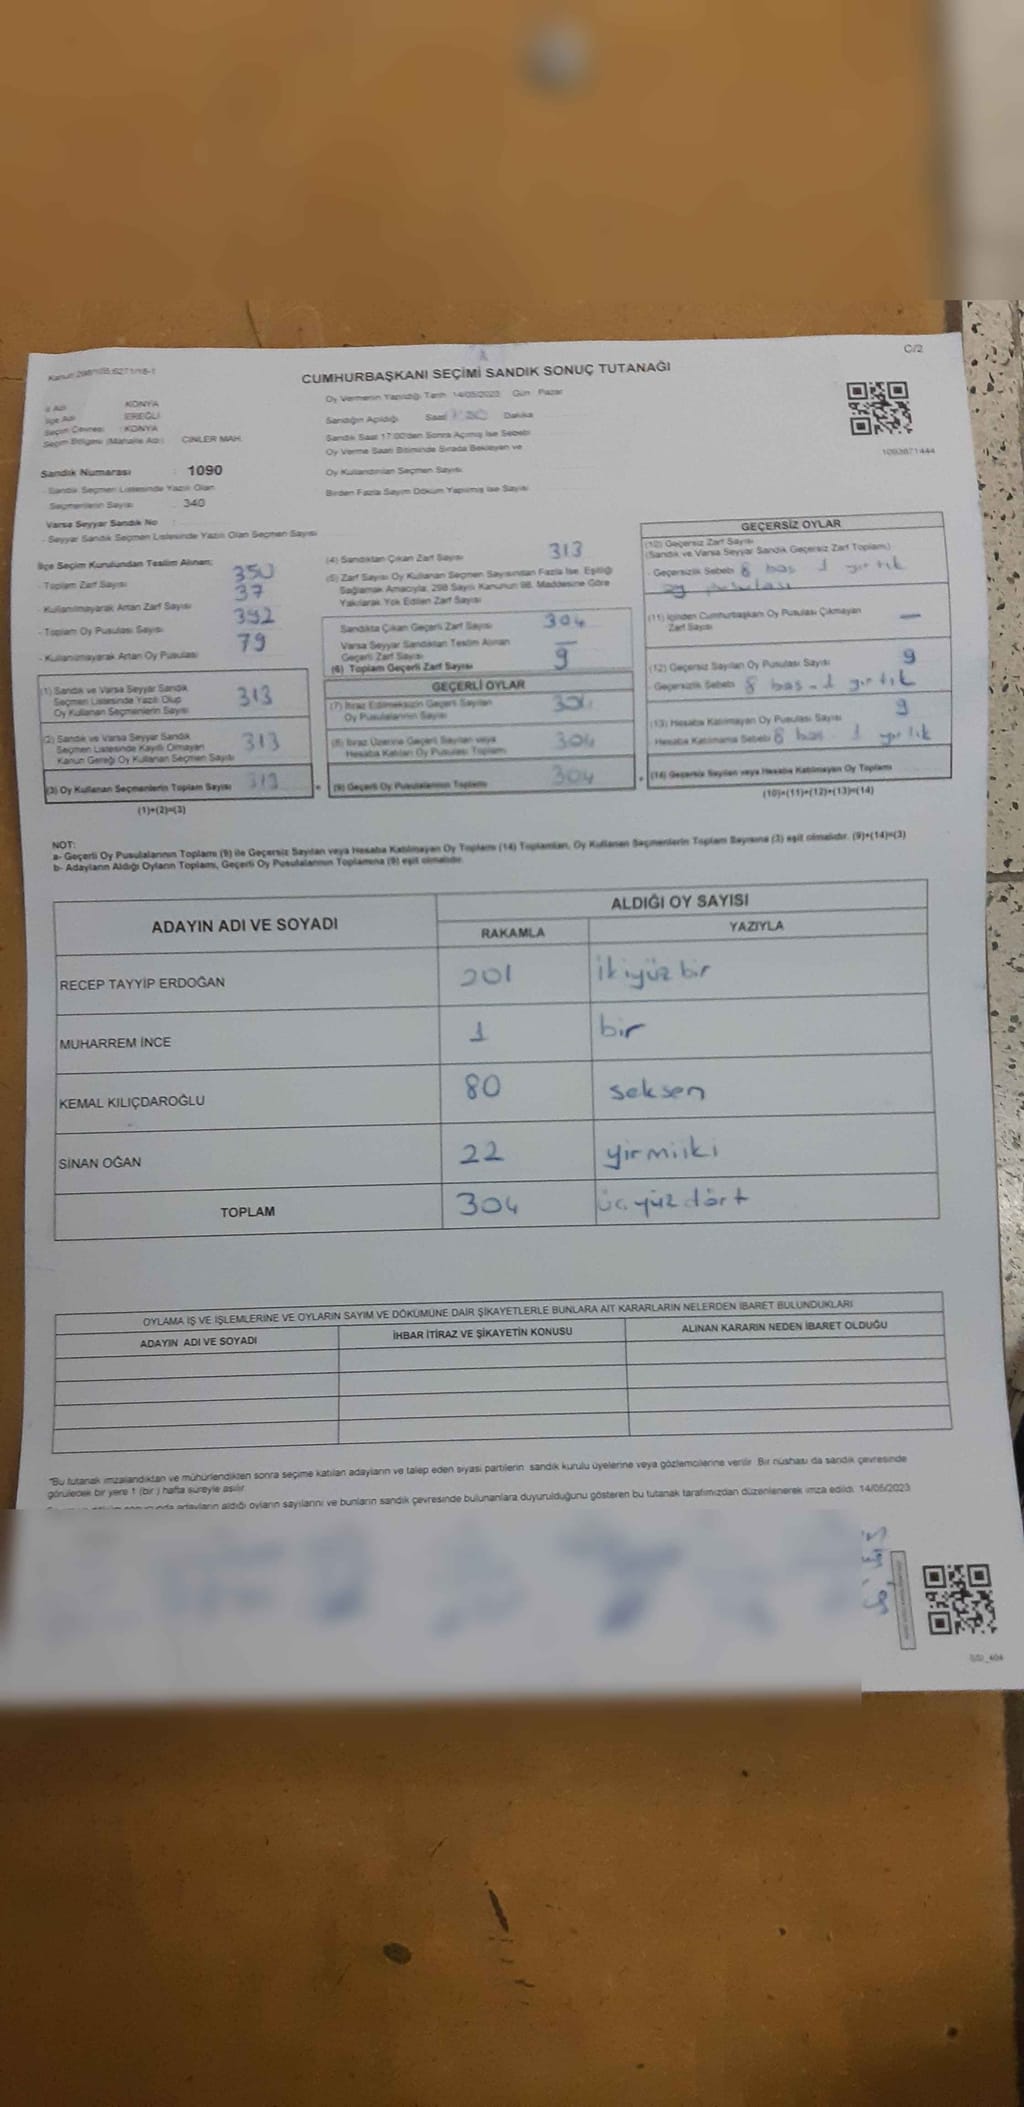 C/2
CUMHURBAŞKANI SEÇİMİ SANDIK SONUÇ TUTANAĞI
İl Adı KONYA
İlçe Adı EREĞLİ
Seçim Çevresi : KONYA
Seçim Bölgesi (Mahalle Adı) CİNLER MAH.
Oy Vermenin Yapıldığı Tarih 14/05/2023 Gün Pazar
Sandığın Açıldığı Saat Dakika
Sandık Saat 17:00'den Sonra Açmış İse Sebebi
Oy Verme Saati Bitiminde Sırada Bekleyen ve
Oy Kullandırılan Seçmen Sayısı
Birden Fazla Sayım Döküm Yapılmış İse Sayısı
1093871444
Sandık Numarası : 1090
- Sandık Seçmen Listesinde Yazılı Olan
Seçmenlerin Sayısı : 340
Varsa Seyyar Sandık No :
- Seyyar Sandık Seçmen Listesinde Yazılı Olan Seçmen Sayısı
İlçe Seçim Kurulundan Teslim Alınan;
- Toplam Zarf Sayısı 350
- Kullanılmayarak Artan Zarf Sayısı 37
- Toplam Oy Pusulası Sayısı 392
- Kullanılmayarak Artan Oy Pusulası 79
(1) Sandık ve Varsa Seyyar Sandık
Seçmen Listesinde Yazılı Olup
Oy Kullanan Seçmenlerin Sayısı 313
(2) Sandık ve Varsa Seyyar Sandık
Seçmen Listesinde Kayıtlı Olmayan
Kanun Gereği Oy Kullanan Seçmen Sayısı 313
(3) Oy Kullanan Seçmenlerin Toplam Sayısı 313
(1)+(2)=(3)
(4) Sandıktan Çıkan Zarf Sayısı 313
(5) Zarf Sayısı Oy Kullanan Seçmen Sayısından Fazla İse, Eşitliği
Sağlamak Amacıyla; 298 Sayılı Kanunun 98. Maddesine Göre
Yakılarak Yok Edilen Zarf Sayısı
Sandıkta Çıkan Geçerli Zarf Sayısı 304
Varsa Seyyar Sandıktan Teslim Alınan
Geçerli Zarf Sayısı
(6) Toplam Geçerli Zarf Sayısı 9
GEÇERLİ OYLAR
(7) İtiraz Edilmeksizin Geçerli Sayılan
Oy Pusulalarının Sayısı 304
(8) İtiraz Üzerine Geçerli Sayılan veya
Hesaba Katılan Oy Pusulası Toplamı 304
(9) Geçerli Oy Pusulalarının Toplamı 304
GEÇERSİZ OYLAR
(10) Geçersiz Zarf Sayısı
(Sandık ve Varsa Seyyar Sandık Geçersiz Zarf Toplamı)
- Geçersizlik Sebebi 8 bos 1 yırtık
oy pusulası
(11) İçinden Cumhurbaşkanı Oy Pusulası Çıkmayan
Zarf Sayısı —
(12) Geçersiz Sayılan Oy Pusulası Sayısı 9
- Geçersizlik Sebebi 8 bos - 1 yırtık
(13) Hesaba Katılmayan Oy Pusulası Sayısı 9
Hesaba Katılmama Sebebi 8 bos 1 yırtık
(14) Geçersiz Sayılan veya Hesaba Katılmayan Oy Toplamı
(10)+(11)+(12)+(13)=(14)
NOT:
a- Geçerli Oy Pusulalarının Toplamı (9) ile Geçersiz Sayılan veya Hesaba Katılmayan Oy Toplamı (14) Toplamları, Oy Kullanan Seçmenlerin Toplam Sayısına (3) eşit olmalıdır. (9)+(14)=(3)
b- Adayların Aldığı Oyların Toplamı, Geçerli Oy Pusulalarının Toplamına (9) eşit olmalıdır.
ADAYIN ADI VE SOYADI
ALDIĞI OY SAYISI
RAKAMLA YAZIYLA
RECEP TAYYİP ERDOĞAN 201 ikiyüz bir
MUHARREM İNCE 1 bir
KEMAL KILIÇDAROĞLU 80 seksen
SİNAN OĞAN 22 yirmiiki
TOPLAM 304 üçyüz dört
OYLAMA İŞ VE İŞLEMLERİNE VE OYLARIN SAYIM VE DÖKÜMÜNE DAİR ŞİKAYETLERLE BUNLARA AİT KARARLARIN NELERDEN İBARET BULUNDUKLARI
ADAYIN ADI VE SOYADI İHBAR İTİRAZ VE ŞİKAYETİN KONUSU ALINAN KARARIN NEDEN İBARET OLDUĞU
"Bu tutanak imzalandıktan ve mühürlendikten sonra seçime katılan adayların ve talep eden siyasi partilerin sandık kurulu üyelerine veya gözlemcilerine verilir. Bir nüshası da sandık çevresinde
görülecek bir yere 1 (bir) hafta süreyle asılır.
adayların aldığı oyların sayılarını ve bunların sandık çevresinde bulunanlara duyurulduğunu gösteren bu tutanak tarafımızdan düzenlenerek imza edildi. 14/05/2023